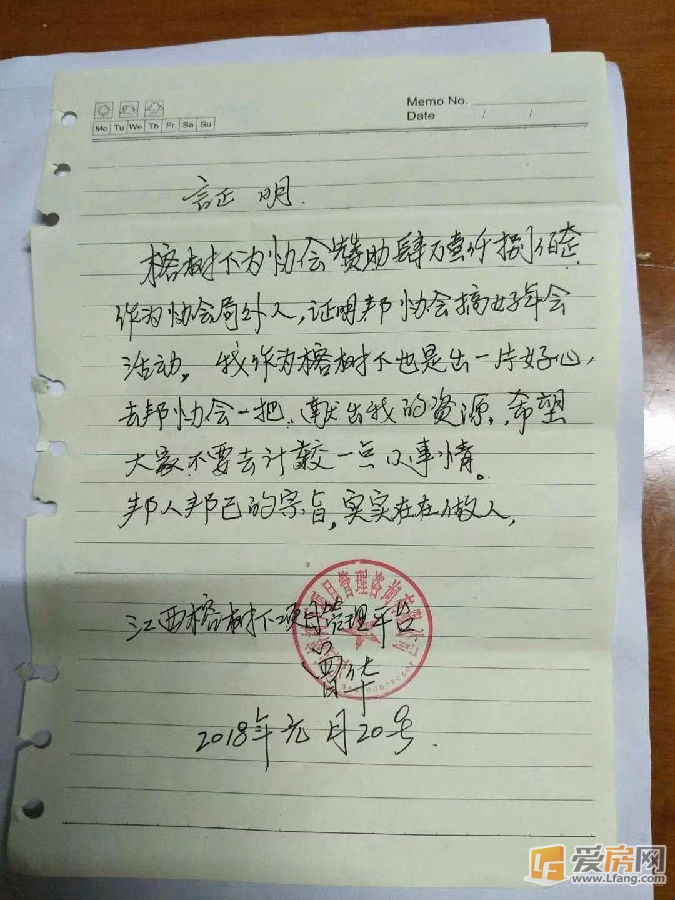 Memo No.
Date / /
Mo Tu We Th Fr Sa Su
証明
榕树下为协会赞助肆万壹仟捌佰
作为协会局外人,证明邦协会搞好年会
活动。我作为榕树下也是出一片好心,
去邦协会一把,献出我的资源,希望
大家不要去计较一点小事情。
邦人邦己的宗旨,实实在在做人,
项目管理咨询有限公司
江西榕树下项目管理平台
2018年元月20号.
爱房网
www.Lfang.com